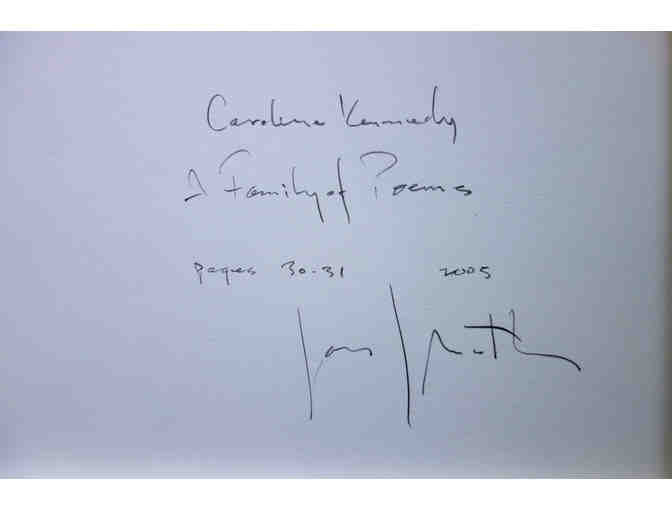 Caroline Kennedy
A Family of Poems
pages 30-31 2005
Jon J Muth